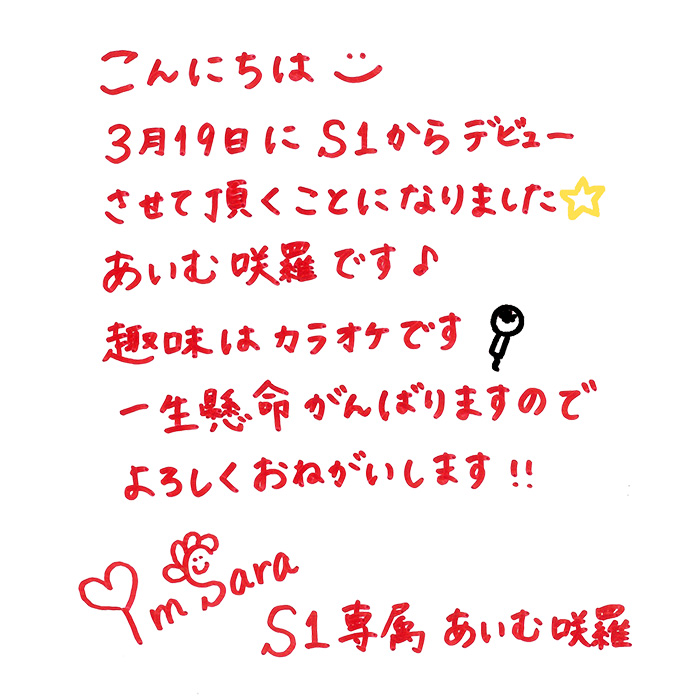 こんにちは
3月19日に S1からデビュー
させて頂くことになりました☆
あいむ咲羅です♪
趣味はカラオケです
一生懸命がんばりますので
よろしくおねがいします!!
Im Sara
S1専属 あいむ咲羅